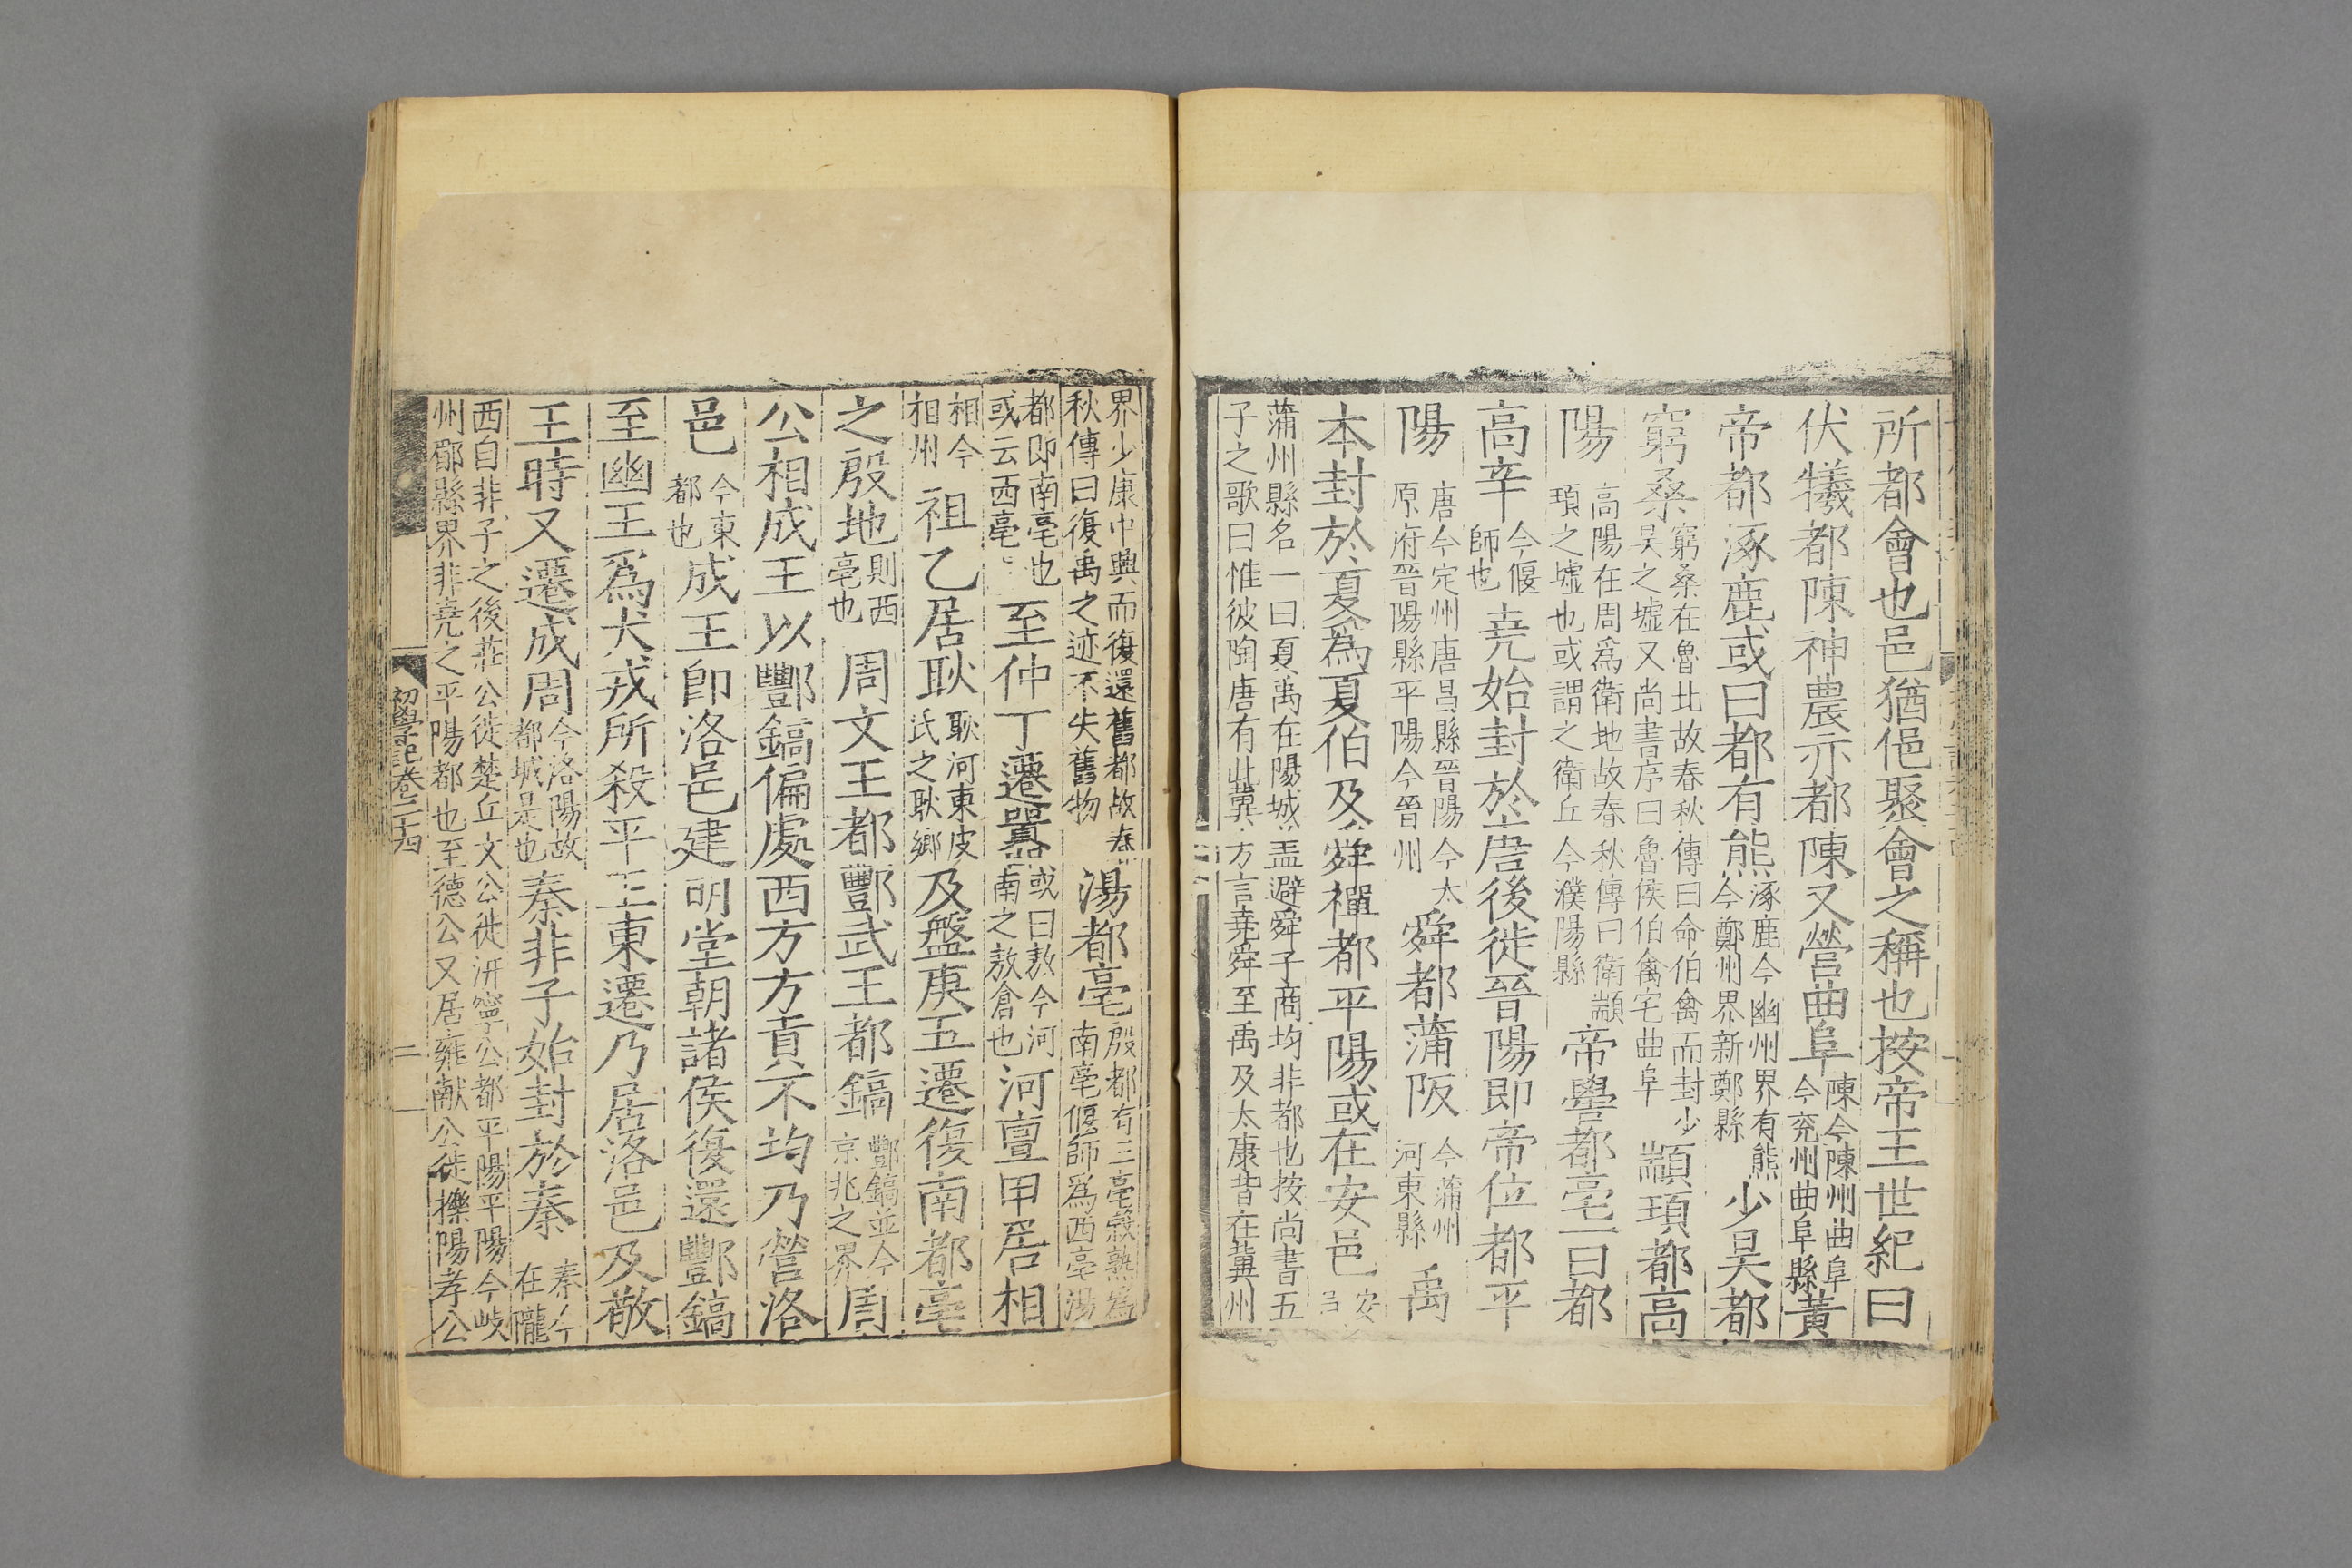 所都會也邑猶俋聚會之稱也按帝王世紀曰
伏犧都陳神農亦都陳又營曲阜陳今陳州曲阜今兖州曲阜縣黃
帝都涿鹿或曰都有熊涿鹿今幽州界有熊今鄭州界新鄭縣少昊都
窮桑窮桑在魯北故春秋傳曰命伯禽而封少昊之墟又尚書序曰魯侯伯禽宅曲阜顓頊都高
陽高陽在周爲衛地故春秋傳曰衛顓頊之墟也或謂之衛丘今濮陽縣帝嚳都亳一曰都
高辛今偃師也堯始封於唐後徙晉陽即帝位都平
陽唐今定州唐昌縣晉陽今太原府晉陽縣平陽今晉州舜都蒲阪今蒲州河東縣禹
本封於夏爲夏伯及舜禪都平陽或在安邑安邑
蒲州縣名一曰夏禹在陽城盖避舜子商均非都也按尚書五
子之歌曰惟彼陶唐有此冀方言堯舜至禹及太康皆在冀州
界少康中興而復還舊都故春秋傳曰復禹之迹不失舊物湯都亳殷都有三亳穀熟爲南亳偃師爲西亳湯
都即南亳也或云西亳至仲丁遷嚚或曰敖今河南之敖倉也河亶甲居相
相今相州祖乙居耿耿河東皮氏之耿鄉及盤庚五遷復南都亳
之殷地則西亳也周文王都酆武王都鎬酆鎬並今京兆之界周
公相成王以酆鎬偏處西方方貢不均乃營洛
邑今東都也成王即洛邑建明堂朝諸侯復還酆鎬
至幽王爲犬戎所殺平王東遷乃居洛邑及敬
王時又遷成周今洛陽故都城是也秦非子始封於秦秦今在隴
西自非子之後莊公徙楚丘文公徙汧寧公都平陽平陽今岐
州郿縣界非堯之平陽都也至德公又居雍獻公徙櫟陽孝公
初學記卷二十四
二